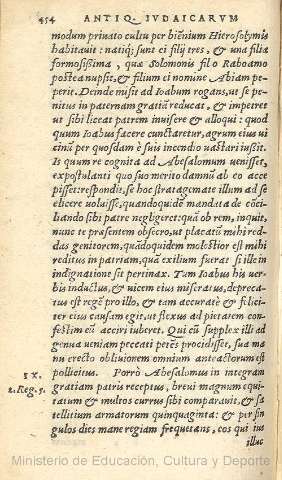 454 ANTIQ. IVDAICARVM
modum priuato cultu per biēnium Hierosolymis
habitauit: natiq; sunt ei filij tres, & una filia
formosissima, qua Solomonis fil o Raboamo
postea nupsit, & filium ei nomine Abiam pe-
perit. Deinde misit ad Ioabum rogans, ut se pe-
nitus in paternam gratiā reducat, & impetret
ut sibi liceat patrem inuisere & alloqui: quod
quum Ioabus facere cunctaretur, agrum eius ui
cinū per quosdam è suis incendio uastari iussit.
Is quum re cognita ad Abesalomum uenisset,
expostulanti quo suo merito damnū ab eo acce
pisset: respondit, se hoc stratagemate illum ad se
elicere uoluisse, quandoquidē mandata de cōci
liando sibi patre negligeret: quā ob rem, inquit,
nunc te præsentem obsecro, ut placatū mihi red-
das genitorem, quādoquidem molestior est mihi
reditus in patriam, quàm exilium fuerat si ille in
indignatione sit pertinax. Tum Ioabus his uer
bis inductus, & uicem eius miseratus, deprecа-
tus est regē pro illo, & tam accuratè & felici-
ter eius causam egit, ut flexus ad pietatem con-
festim eū acciri iuberet. Qui cū supplex illi ad
genua ueniam peccati petēs procidisset, sua ma
nu erecto obliuionem omnium anteactorum est
IX. pollicitus. Porrò Abesalomus in integram
2. Reg. 5. gratiam patris receptus, breui magnum equi-
tatum & multos currus sibi comparauit, & sa
tellitium armatorum quinquaginta: & per sin
gulos dies mane regiam frequetans, cos qui ius
illuc
Ministerio de Educación, Cultura y Deporte